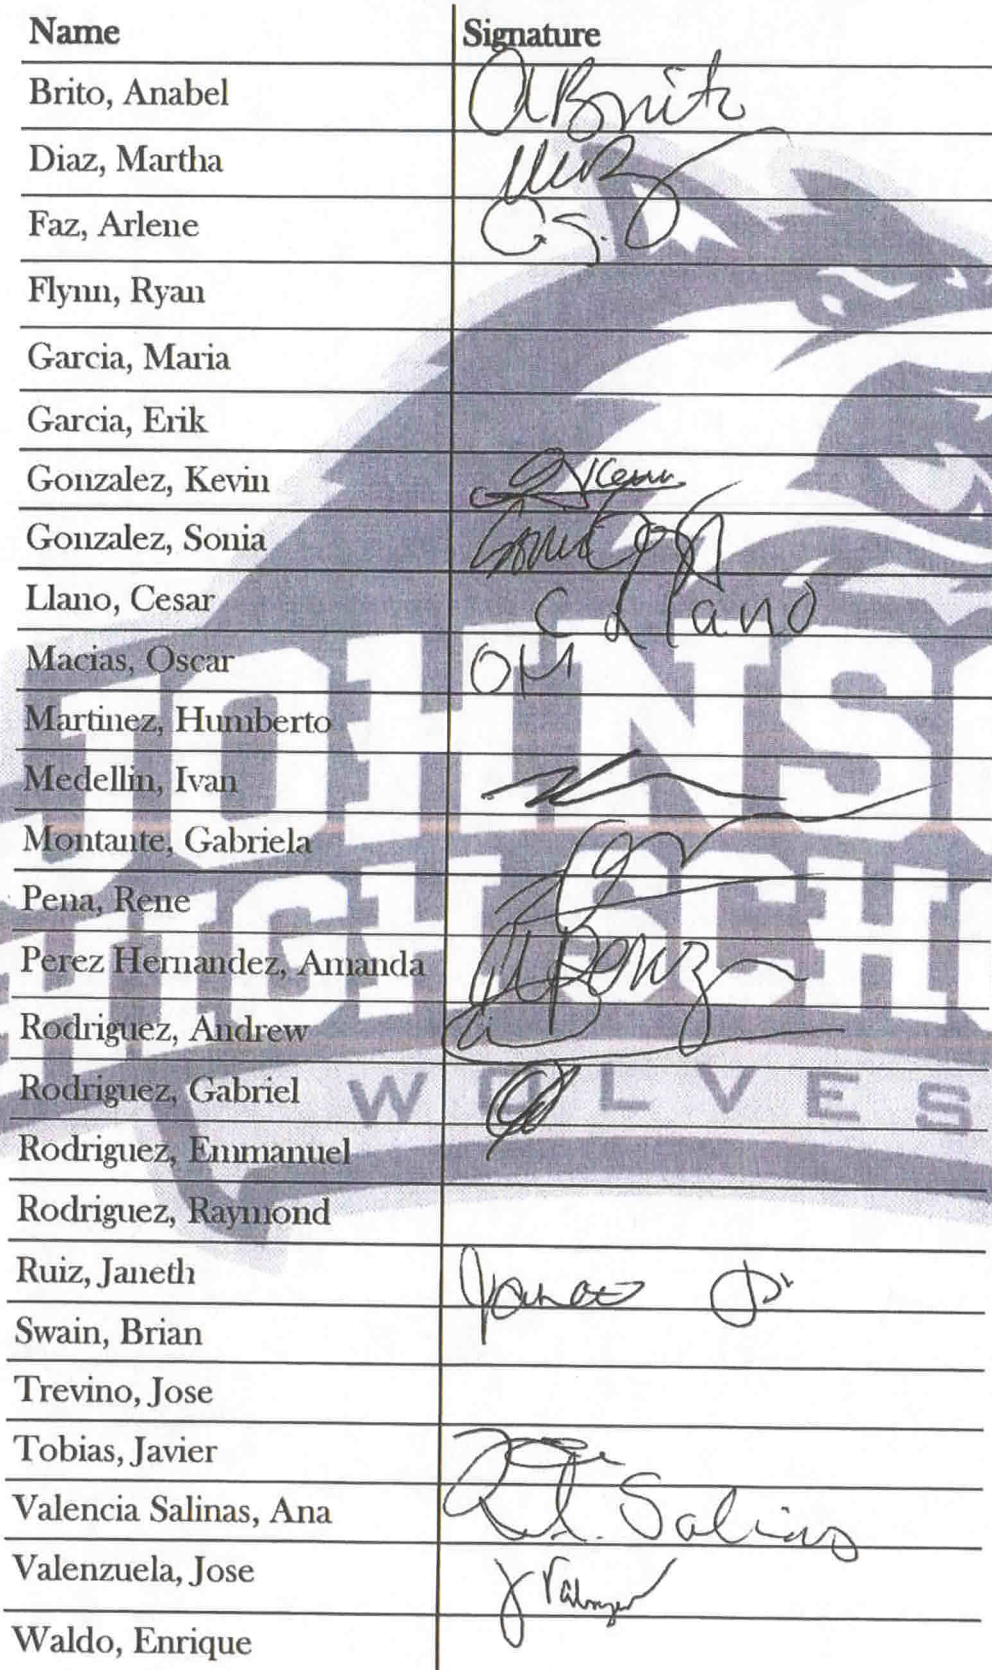 Name Signature
Brito, Anabel ABrito
Diaz, Martha
Faz, Arlene
Flynn, Ryan
Garcia, Maria
Garcia, Erik
Gonzalez, Kevin
Gonzalez, Sonia
Llano, Cesar C Llano
Macias, Oscar OM
Martinez, Humberto
Medellin, Ivan
Montante, Gabriela
Pena, Rene
Perez Hernandez, Amanda
Rodriguez, Andrew
Rodriguez, Gabriel
WOLVES
Rodriguez, Emmanuel
Rodriguez, Raymond
Ruiz, Janeth
Swain, Brian
Trevino, Jose
Tobias, Javier
Valencia Salinas, Ana Salinas
Valenzuela, Jose
Waldo, Enrique